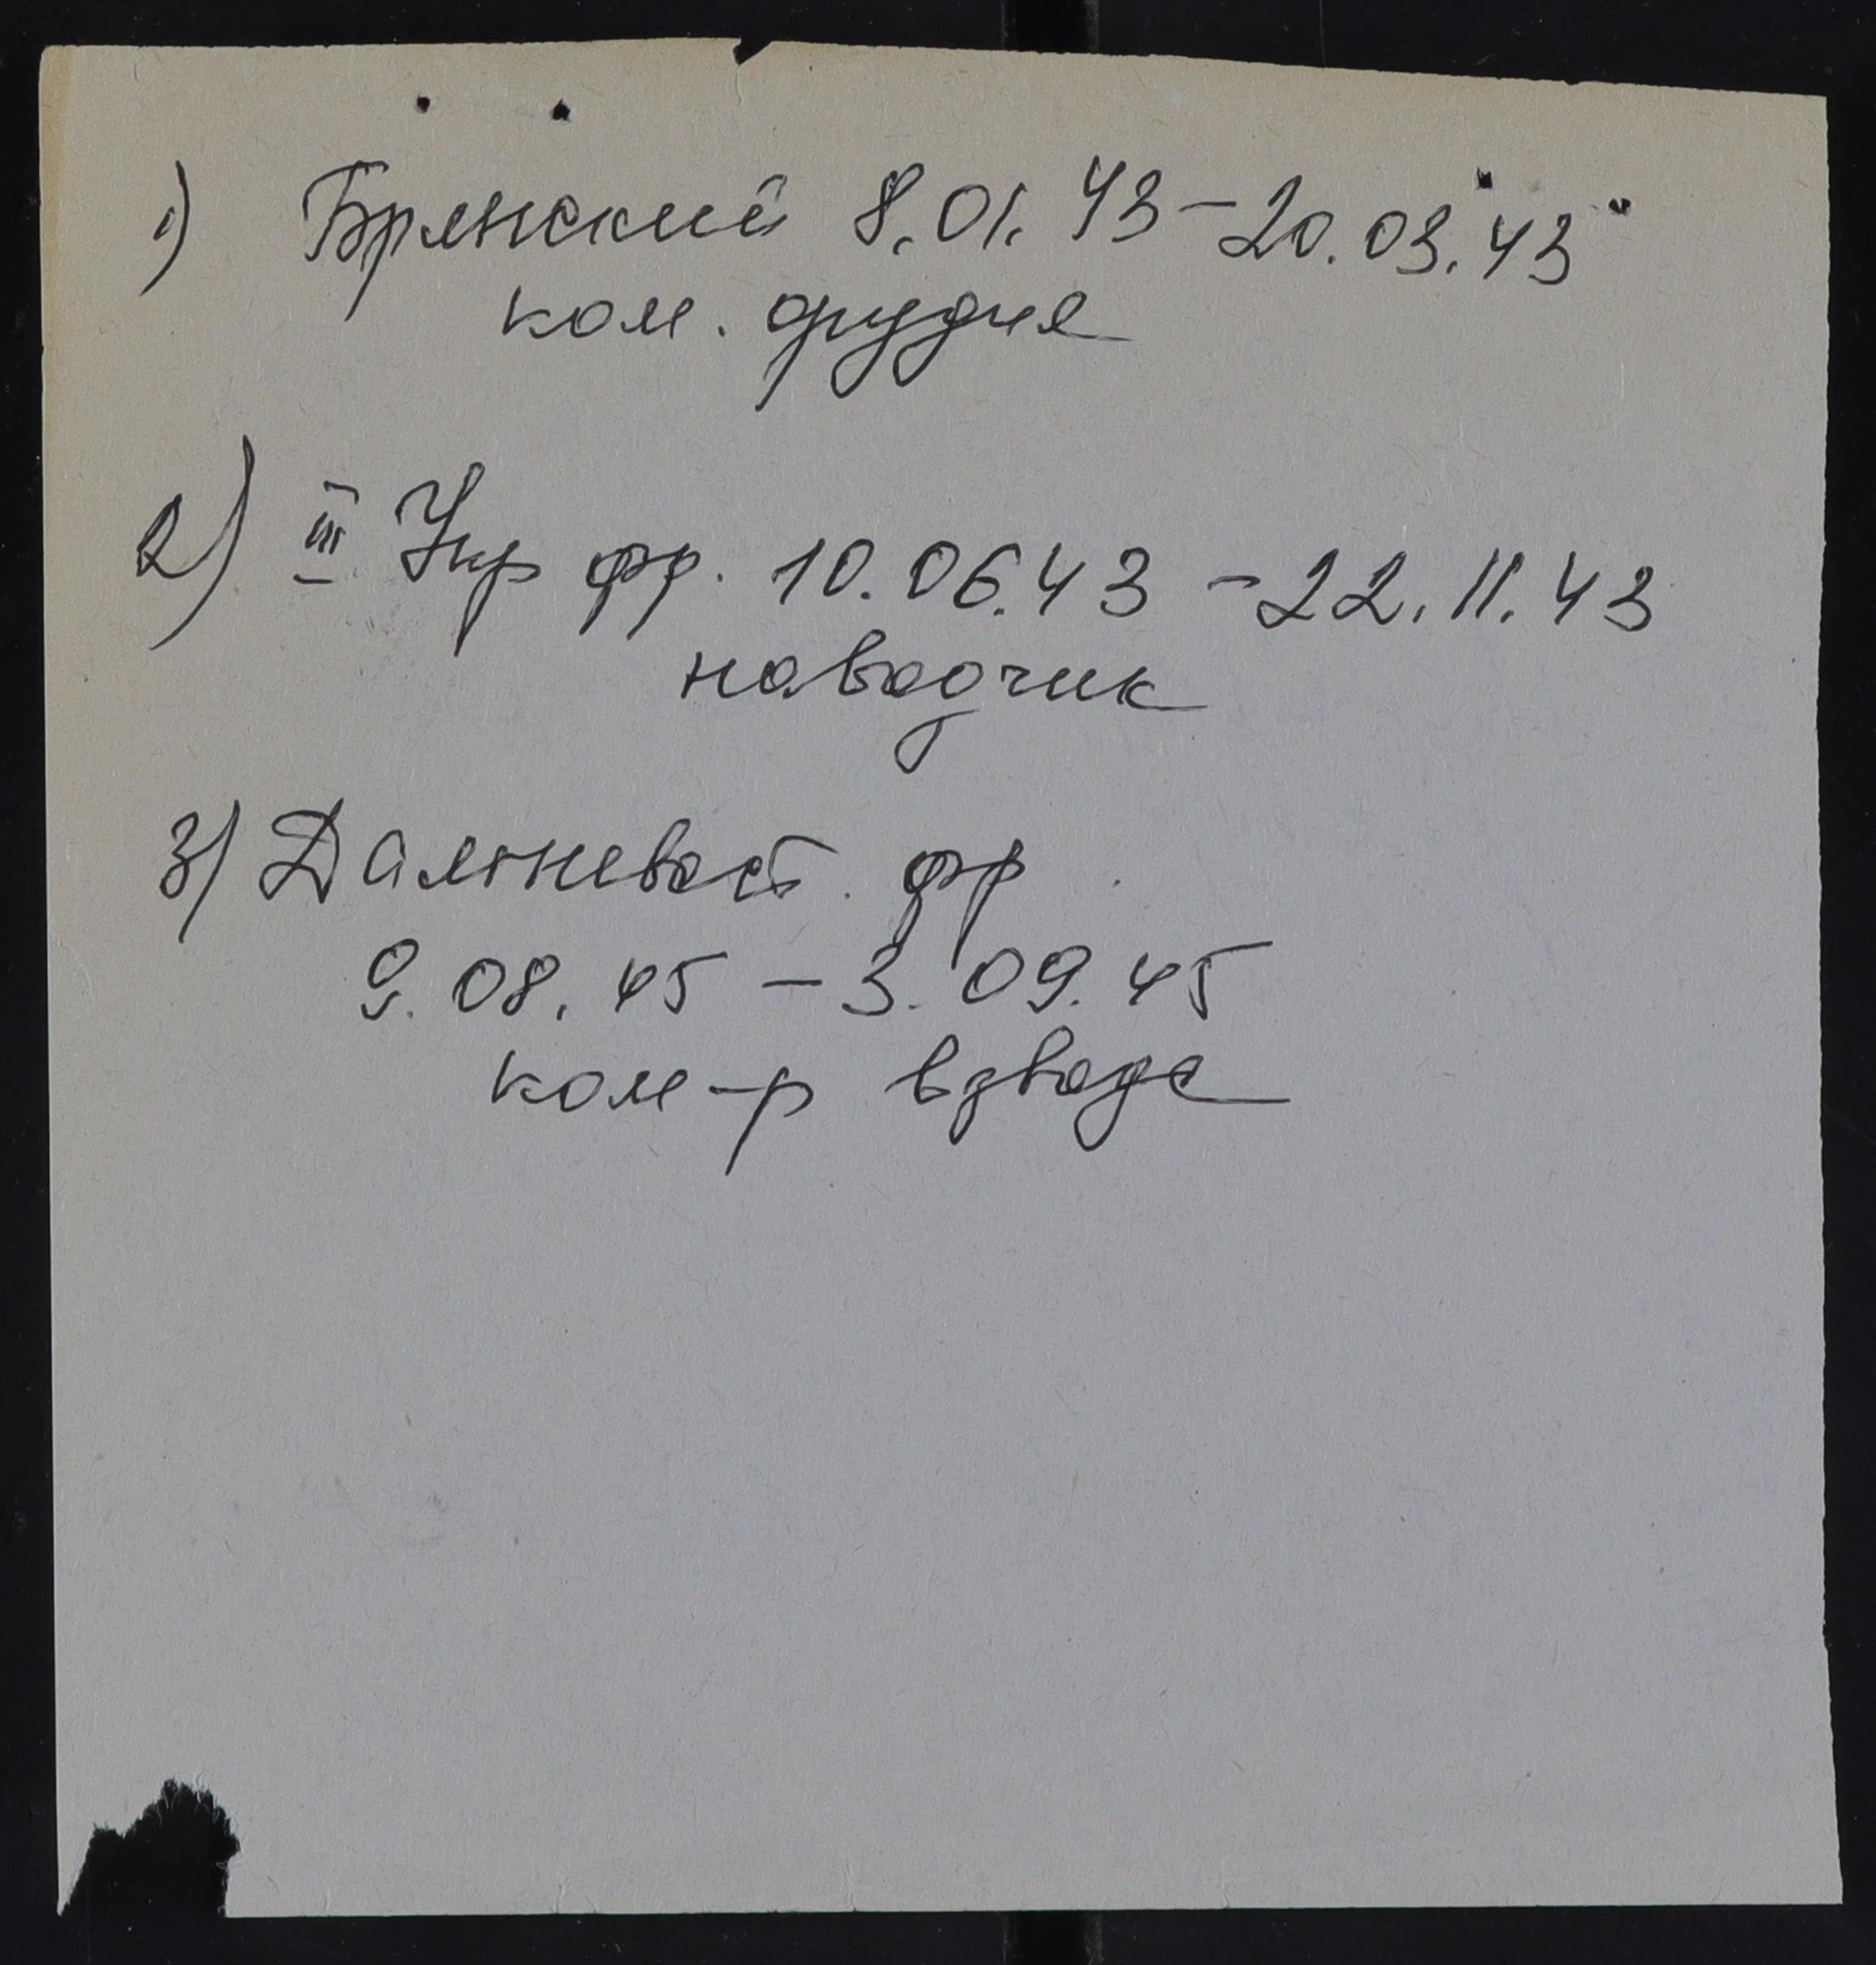 1) Брянский 8.01.43-20.03.43
ком. орудия
2) III Укр фр. 10.06.43-22.11.43
наводчик
3) Дальневост. фр
9.08.45-3.09.45
ком-р взвода